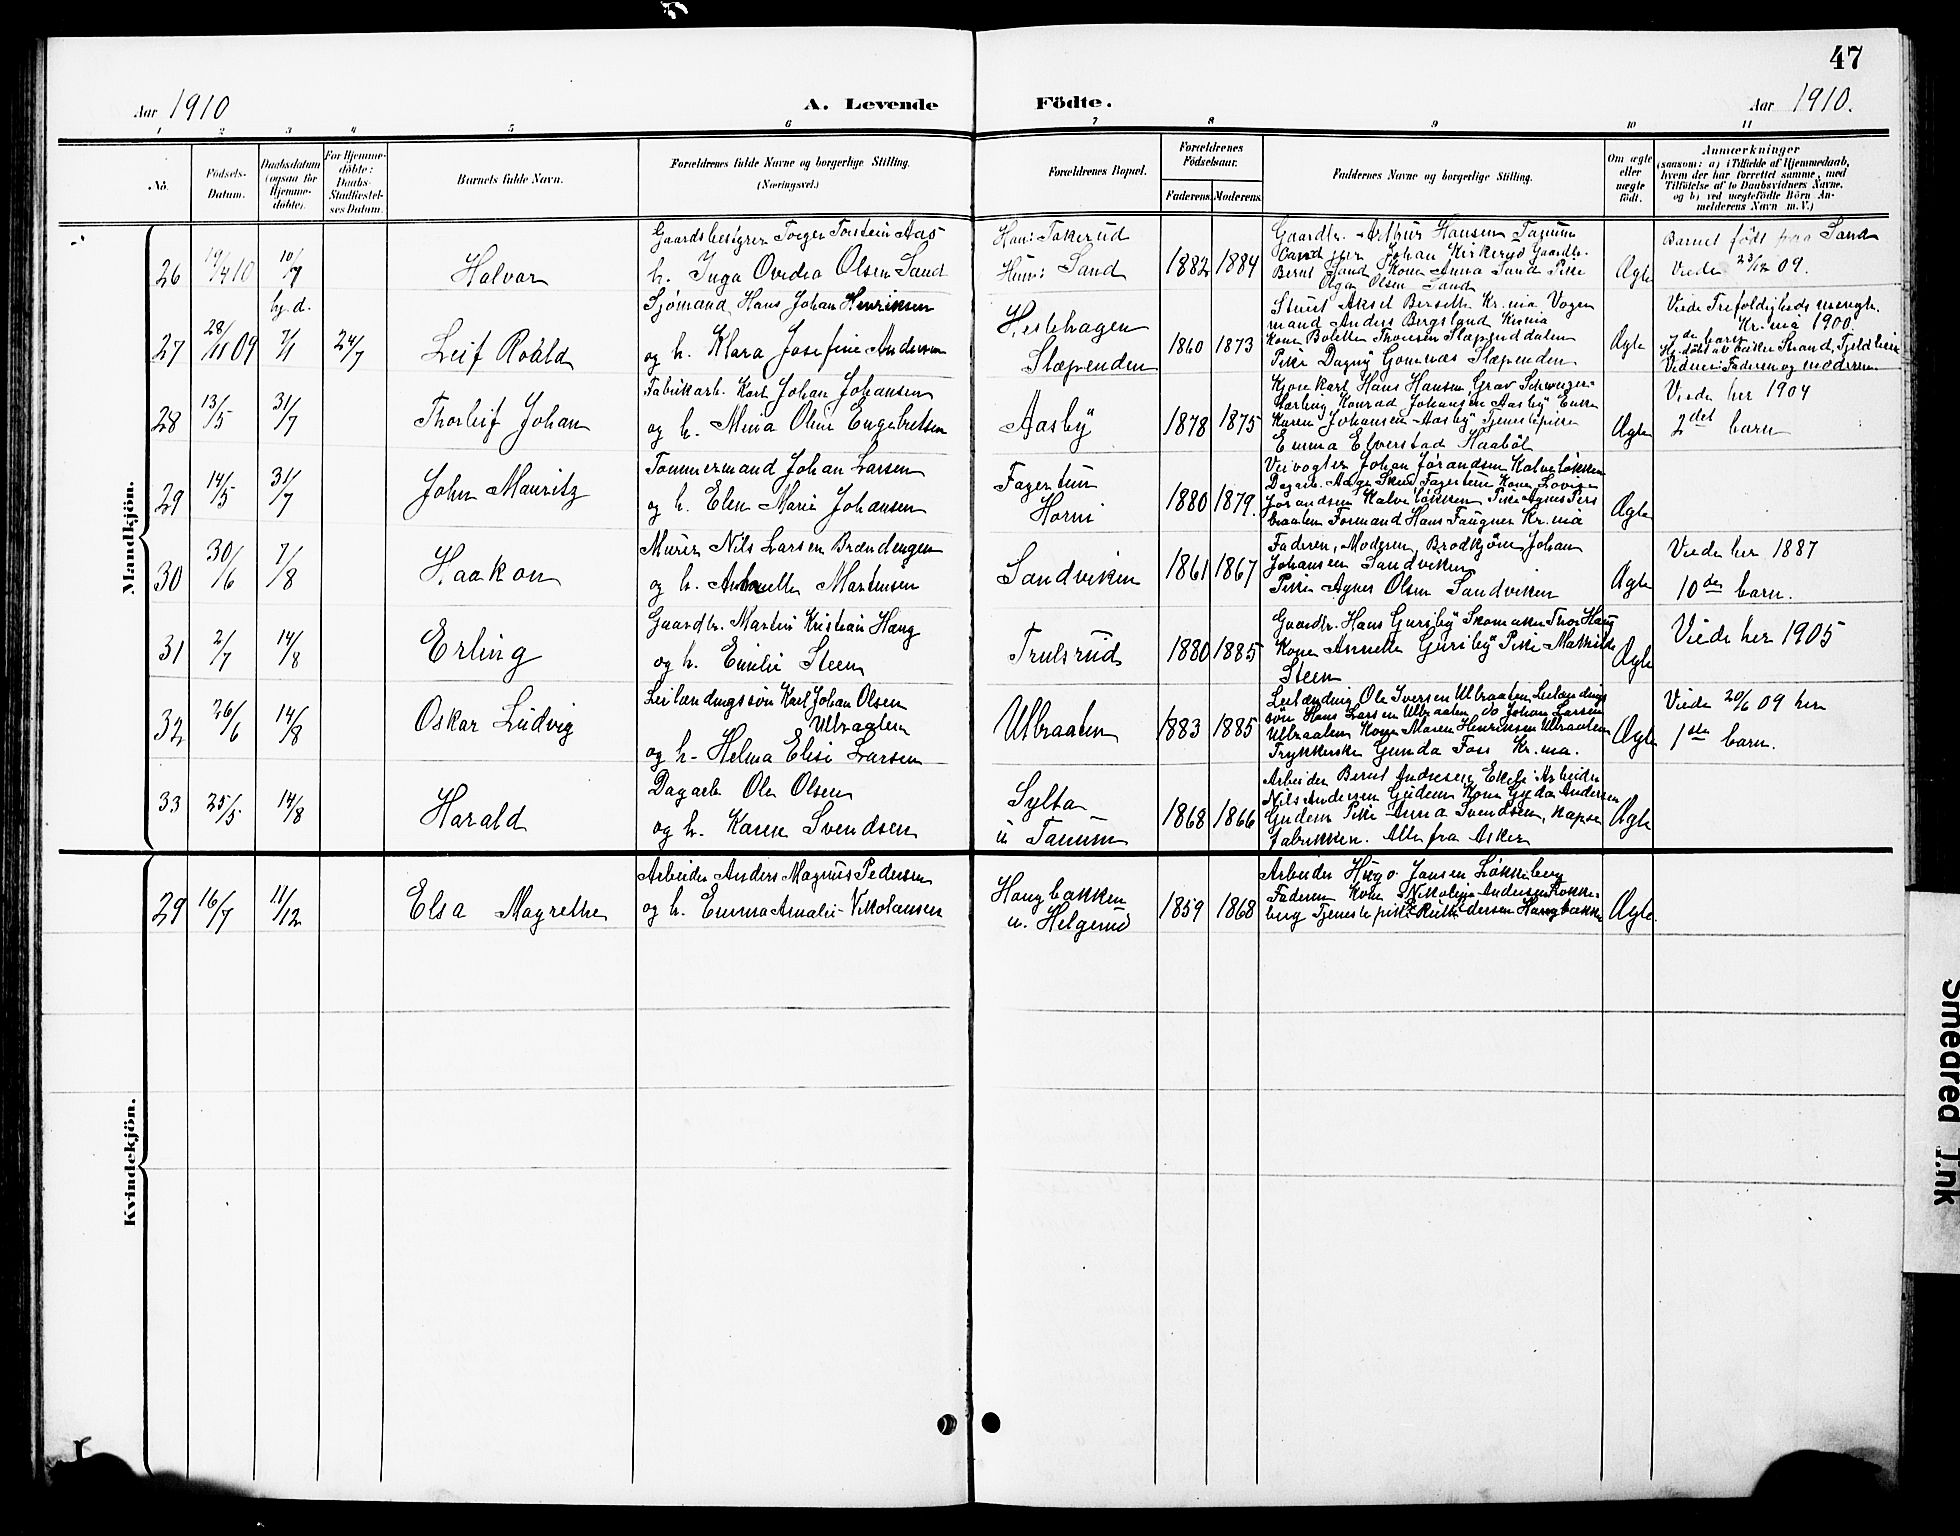 47
Aar 1910
A. Levende
Födte.
Aar 1910.
1 2 3 4 5 6 7 8 9 10 11
No.
Födsels-
Datum.
Daabsdatum
(ogsaa for
Hjemme-
döbte).
For Hjemme-
döbte:
Daabs-
Stadfæstel-
ses Datum.
Barnets fulde Navn.
Forældrenes fulde Navne og borgerlige Stilling.
(Næringsvei.)
Forældrenes Bopæl.
Forældrenes
Födselsaar.
Faderens Moderens
Faddernes Navne og borgerlige Stilling.
Om ægte
eller
uægte
födt.
Anmærkninger
(saasom: a) i Tilfælde af Hjemmedaab,
hvem der har forrettet samme, med
Tilföielse af to Daabsvidners Navne,
og b) ved uægtefödte Börn An-
melderens Navn m. V.)
Mandkjön.
26
19/4 10
10/7
Halvor
Gaardbesigrer Torger Torstein Aas
h. Inga Ovedia Olsen Sand
Han: Takerud
Hun: Sand
1882 1884
Gaardbr. Arthur Hansen Tanum
Johan Kirkerud Gaardbr.
Bernt Sand Kone Anna Sand Pike
Olga Olsen Sand
Ægte
Barnet födt paa Sand
Viede 23/12 09.
27
28/11 09
hj. d.
7/1
24/7
Leif Roald
Sjömand Hans Johan Henriksen
og h. Klara Josefine Andersen
Hestehagen
Slæpenden
1860 1873
Stud. Aksel Berseth Kr.nia Vogn
mand Anders Bergsland Kr.nia
Kone Bolette Thoresen Slæpenddalen
Pike Dagny Gomnæs Slæpenden
Ægte
Viede Trefoldigheds menigh.
Kr.nia 1900.
7de barn
Hj. döbt av Strand,
Vidner: Faderen og moderen
28
13/5
31/7
Thorleif Johan
Fabrikarb. Karl Johan Johansen
og h. Mina Oline Engebretsen
Aasby
1878 1875
Hans Hansen Grav
Konrad Johansen Aasby Enke
Karen Johansen Aasby Tjenestepike
Emma Elverstad Haaböl
Ægte
Viede her 1904
2det barn
29
14/5
31/7
John Mauritz
Tommermand Johan Larsen
og h. Elen Marie Johansen
Fagertun
Horni
1880 1879.
Veivogter Johan Jörandsen Kalvelökken
Dagarb. Aage Skud Fagertun Kone Lovise
Jörandsen Kalvelökken Pike Agnes Pers
braaten Formand Hans Faugner Kr.nia
Ægte
30
30/6
7/8
Haakon
Murer Nils Larsen Brændengen
og h. Martinsen
Sandviken
1861 1867
Faderen, Moderen, Brödkjörer Johan
Johansen Sandviken
Pike Agnes Olsen Sandviken
Ægte
Viede her 1887
10de barn.
31
2/7
14/8
Erling
Gaardbr. Martin Kristian Haug
og h. Emilie Steen
Trulsrud
1880 1885
Gaardbr. Hans Gursby Skomaker Thor Haug
Kone Annette Gursby Pike Mathilde
Steen
Ægte
Viede her 1905
32
26/6
14/8
Oskar Ludvig
Leilændingssön Karl Johan Olsen
Ulbraaten
og h. Helma Elise Larsen
Ulbraaten
1883 1885
Leilænding Ole Iversen Ulbraaten Leilændings
sön Hans Larsen Ulbraaten do Johan Larsen
Ulbraaten Kone Maren Henriksen Ulbraaten
Trykkerske Gunda Foss Kr.nia.
Ægte
Viede 20/6 09 her
1ste barn.
33
25/5
14/8
Harald
Dagarb Ole Olsen
og h. Karen Svendsen
Sylta
u Tanum
1868 1866
Arbeider Bernt Andresen Arbeider
Nils Andersen Gudem Kone Gyda Andersen
Gudem Pike Anna Svendsen, Kapse
fabrikken. Alle fra Asker
Ægte
Kvindekjön.
29
16/7
11/12
Elsa Magrethe
Arbeider Anders Magnus Pedersen
og h. Emma Amalie Nikolaisen
Haugbakken
u. Helgerud
1859 1868
Arbeider Hugo Jansen Lökkeberg
Faderen Kone Nikoline Andersen Lökke-
berg Tjenestepike Ruth Haugbakken
Ægte.
Smeared Ink